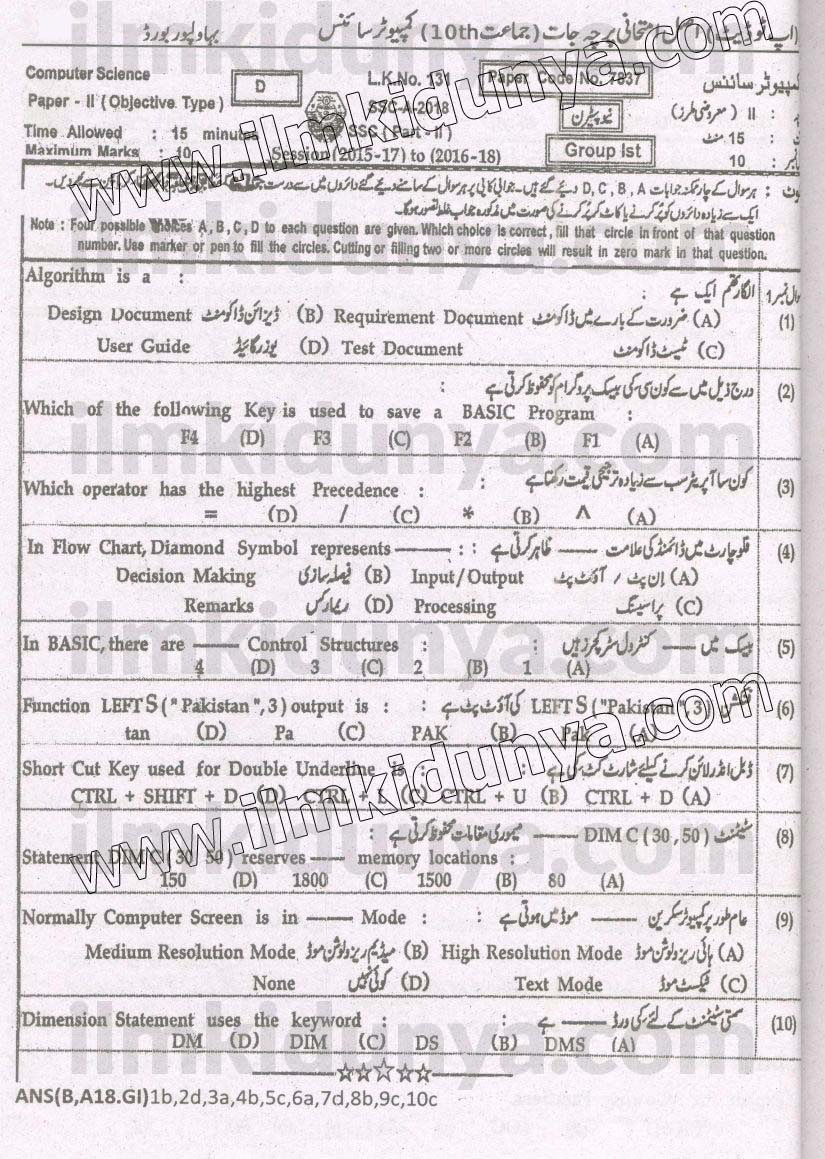 اپ ٹو ڈیٹ) اصل امتحانی پرچہ جات (جماعت 10th) کمپیوٹر سائنس بہاولپور بورڈ
Computer Science D L.K.No. 131 Paper Code No. 7837 کمپیوٹر سائنس
Paper - II (Objective Type) SSC-A-2018 نیو پیٹرن II (معروضی طرز)
Time Allowed : 15 minutes SSC (Part - II) 15 منٹ
Maximum Marks : 10 Session (2015-17) to (2016-18) Group Ist 10
ہر سوال کے چار ممکنہ جوابات D, C, B, A دیئے گئے ہیں۔ جوابی کاپی پر ہر سوال کے سامنے دیئے گئے دائروں میں سے درست
ایک سے زیادہ دائروں کو پُر کرنے یا کاٹ کر پُر کرنے کی صورت میں مذکورہ جواب غلط تصور ہوگا۔
Note : Four possible choices A, B, C, D to each question are given. Which choice is correct, fill that circle in front of that question
number. Use marker or pen to fill the circles. Cutting or filling two or more circles will result in zero mark in that question.
Algorithm is a : الگارتھم ایک ہے سوال نمبر 1
Design Document ڈیزائن ڈاکومنٹ (B) Requirement Document ضرورت کے بارے میں ڈاکومنٹ (A) (1)
User Guide یوزر گائیڈ (D) Test Document ٹیسٹ ڈاکومنٹ (C)
درج ذیل میں سے کون سی کی بیسک پروگرام کو محفوظ کرتی ہے : (2)
Which of the following Key is used to save a BASIC Program :
F4 (D) F3 (C) F2 (B) F1 (A)
Which operator has the highest Precedence : کون سا آپریٹر سب سے زیادہ ترجیحی قیمت رکھتا ہے : (3)
= (D) / (C) * (B) ^ (A)
In Flow Chart, Diamond Symbol represents ——— : فلو چارٹ میں ڈائمنڈ کی علامت —— ظاہر کرتی ہے : (4)
Decision Making فیصلہ سازی (B) Input/Output ان پٹ / آؤٹ پٹ (A)
Remarks ریمارکس (D) Processing پراسیسنگ (C)
In BASIC, there are —— Control Structures : بیسک میں —— کنٹرول سٹرکچرز ہیں : (5)
4 (D) 3 (C) 2 (B) 1 (A)
Function LEFT S ("Pakistan", 3) output is : فنکشن LEFT S ("Pakistan", 3) کی آؤٹ پٹ ہے : (6)
tan (D) Pa (C) PAK (B) Pak (A)
Short Cut Key used for Double Underline is : ڈبل انڈر لائن کرنے کیلئے شارٹ کٹ کی ہے : (7)
CTRL + SHIFT + D (D) CTRL + L (C) CTRL + U (B) CTRL + D (A)
سٹیٹمنٹ DIM C (30, 50) —— میموری مقامات محفوظ کرتی ہے : (8)
Statement DIM C (30, 50) reserves —— memory locations :
150 (D) 1800 (C) 1500 (B) 80 (A)
Normally Computer Screen is in —— Mode : عام طور پر کمپیوٹر سکرین —— موڈ میں ہوتی ہے : (9)
Medium Resolution Mode میڈیم ریزولوشن موڈ (B) High Resolution Mode ہائی ریزولوشن موڈ (A)
None کوئی نہیں (D) Text Mode ٹیکسٹ موڈ (C)
Dimension Statement uses the keyword : سمتی سٹیٹمنٹ کے لئے کی ورڈ —— ہے : (10)
DM (D) DIM (C) DS (B) DMS (A)
ANS(B,A18.GI)1b,2d,3a,4b,5c,6a,7d,8b,9c,10c
www.ilmkidunya.com
www.ilmkidunya.com
ilmkidunya.com
ilmkidunya.com
ilmkidunya.com
ilmkidunya.com
ilmkidunya.com
ilmkidunya.com